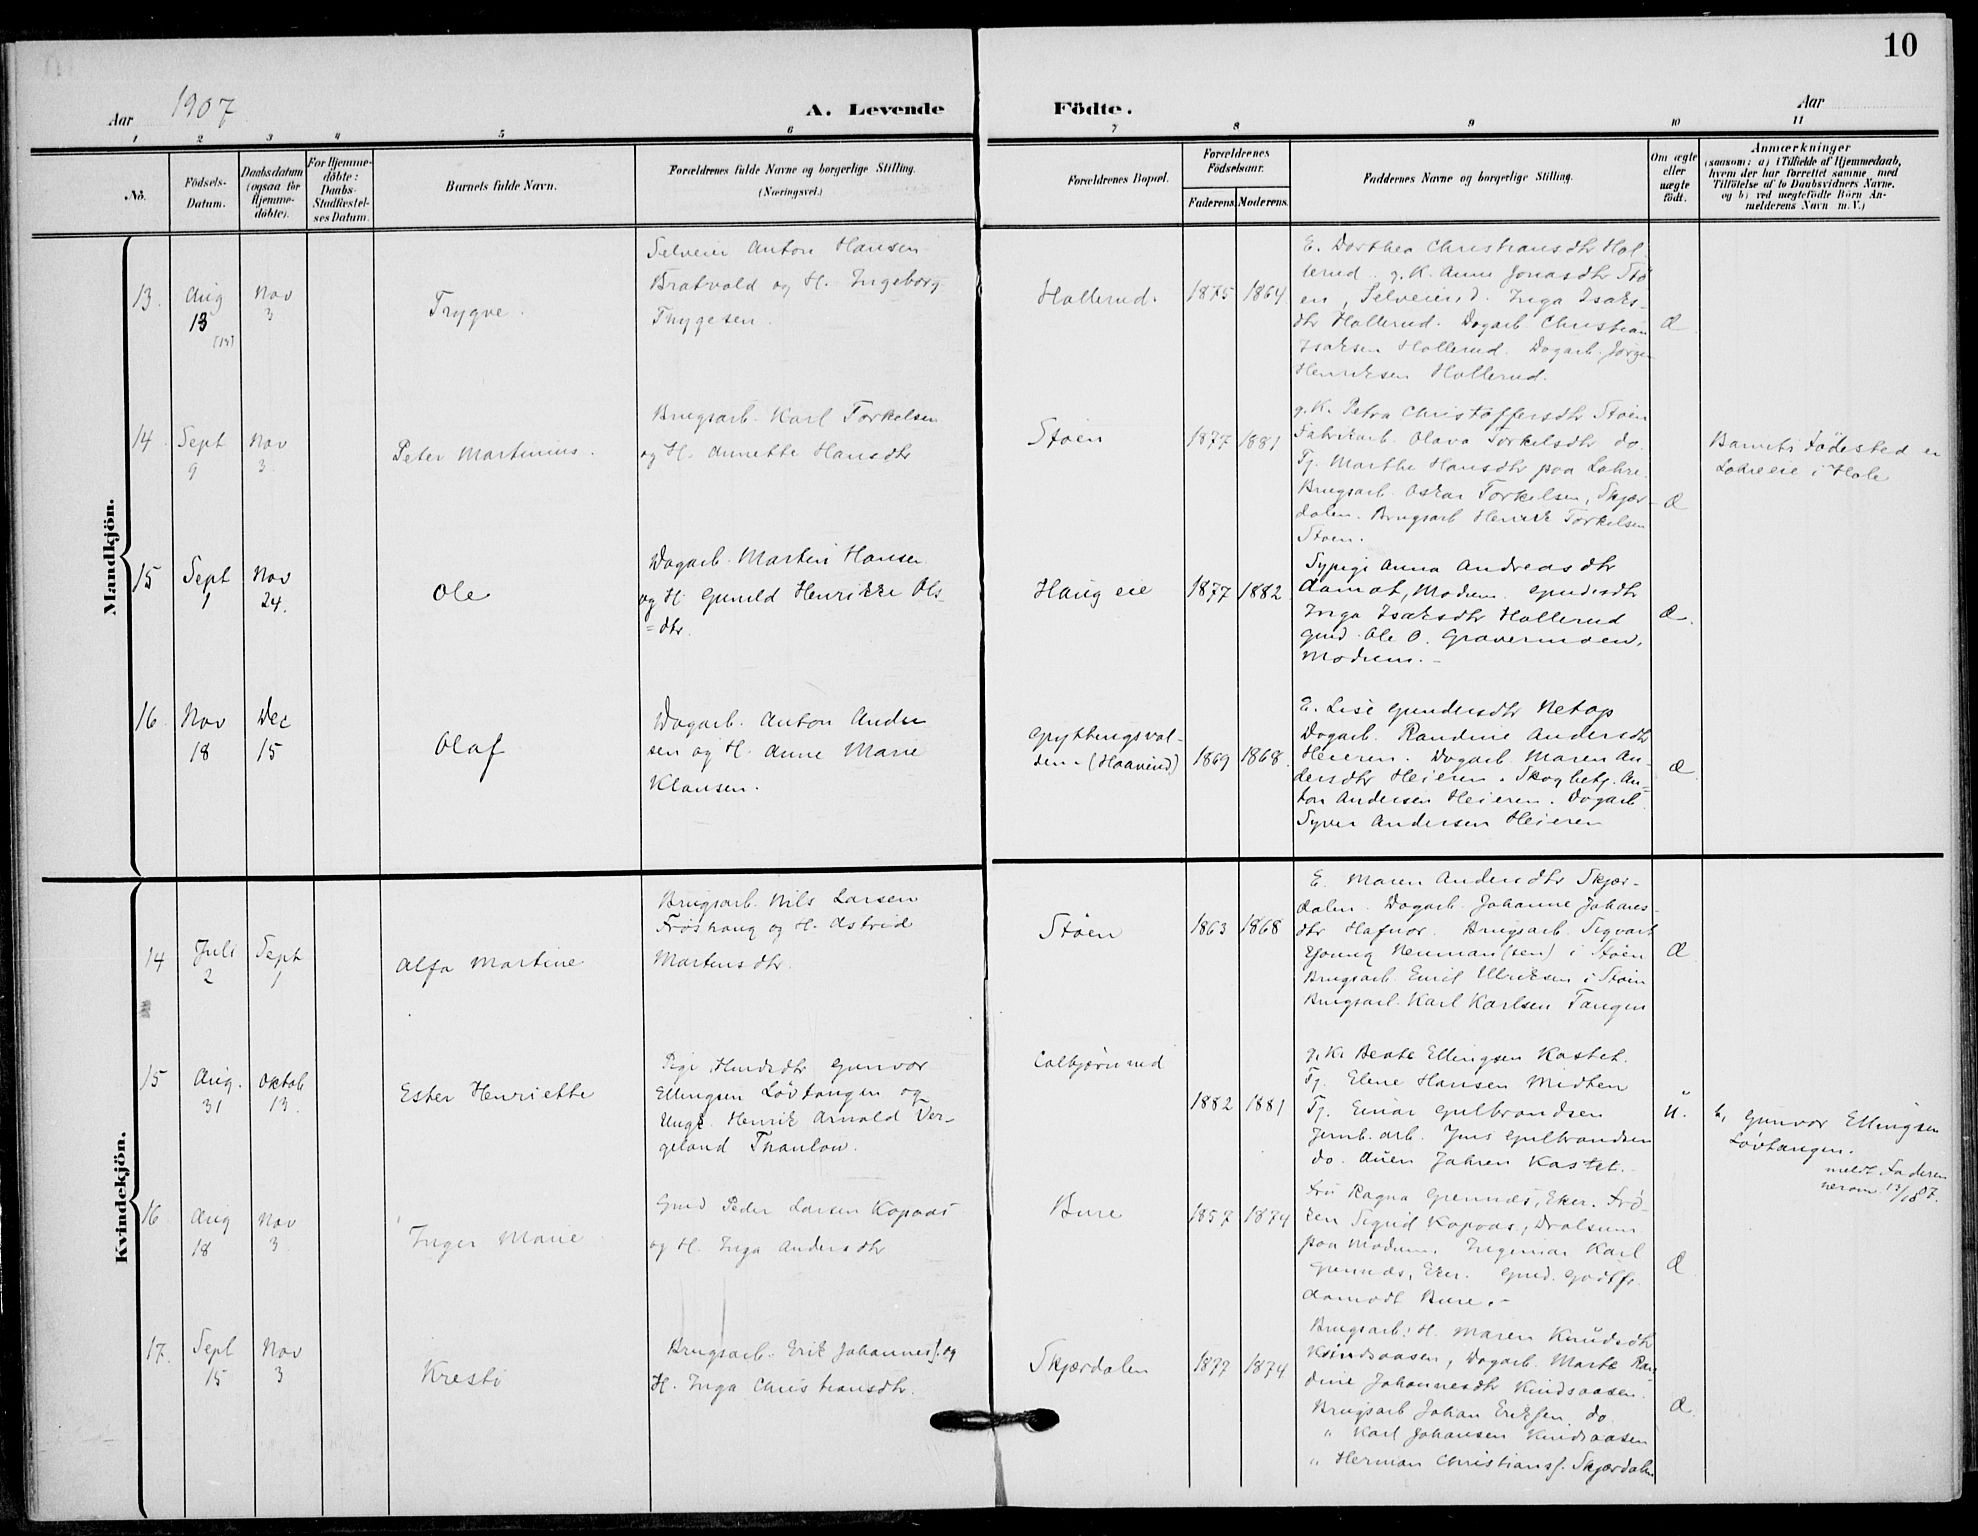 10
Aar 1907
A. Levende Födte.
Aar
1 2 3 4 5 6 7 8 9 10 11
No.
Födsels-
Datum.
Daabsdatum
(ogsaa for
Hjemme-
döbte).
For Hjemme-
döbte:
Daabs-
Stadfæstel-
ses Datum.
Barnets fulde Navn.
Forældrenes fulde Navne og borgerlige Stilling.
(Næringsvei.)
Forældrenes Bopæl.
Forældrenes
Födselsaar.
Faderens. Moderens.
Faddernes Navne og borgerlige Stilling.
Om ægte
eller
uægte
födt.
Anmærkninger
(saasom: a) i Tilfælde af Hjemmedaab,
hvem der har forrettet samme, med
Tilföielse af to Daabsvidners Navne,
og b) ved uægtefödte Börn An-
melderens Navn m. V.)
Mandkjön.
13.
Aug
13
Nov
3
Trygve.
Selveier Anton Hansen
Bratvold og H. Ingeborg
Thygesen.
Hollerud.
1875 1864
E. Dorthea Christiansdtr Hol-
lerud. g.K. Anne Jonasdtr Stø-
en, Selveierd. Inga Isaks-
dtr Hollerud. Dagarb Christian
Isaksen Hollerud. Dagarb. Jørgen
Henriksen Hollerud.
Æ
14
Sept
9
Nov
3
Peter Martinius.
Brugsarb. Karl Torkelsen
og H. Annette Hansdtr
Støen
1877 1881
g.K. Petra Christoffersdtr Støen
Fabrikarb. Olava Torkelsdtr do.
Tj. Marthe Hansdtr paa Lohre.
Brugsarb. Oskar Torkelsen, Skjær-
dalen. Brugsarb Henrik Torkelsen
Støen.
Æ
Barnets Fødested er
Lohreeie i Hole
15
Sept
1
Nov
24.
Ole
Dagarb. Martin Hansen
og H. Gunild Henrikke Ols-
=dtr.
Haug eie
1877 1882
Sypige Anna Andreasdtr
Aamot, Modum. Gmdesdtr
Inga Isaksdtr Hollerud
Gmd. Ole O. Gravermoen,
Modum.-
Æ.
16.
Nov
18
Dec
15
Olaf
Dagarb. Anton Ander
sen og H. Anne Marie
Klausen.
Gryttingsval-
den-(Haaveind)
1869 1868.
E. Lise Gundersdtr Netop
Dagarb. Randine Andersdtr
Heieren. Dagarb. Maren An-
dersdtr Heieren. Skogbetj. An-
ton Andersen Heieren. Dagarb.
Syver Andersen Heieren
Æ
Kvindekjön.
14
Juli
2
Sept
1
Alfa Martine
Brugsarb. Nils Larsen
Frøshaug og H. Astrid
Martensdtr.
Støen
1863 1868
E. Maren Andersdtr Skjær-
dalen. Dagarb. Johanne Johans-
dtr Hafnor. Brugsarb. Sigvart
Neuman(sen) i Støen
Brugsarb. Emil Ulriksen i Støen
Brugsarb. Karl Karlsen Tangen
Æ
15
Aug.
31
Oktob
13.
Ester Henriette
Pige Gunvor
Ellingsen Løvtangen og
Ungk. Henrik Arnold Ver-
geland Thaulow.
Colbjørnrud
1882 1881
g.K. Beate Ellingsen Kastet.
Tj. Elene Hansen Midten
Tj. Einar Gulbrandsen
Jernb. arb. Jens Gulbrandsen
do. Auen Jahren Kastet.
U.
b, Gunvor Ellingsen
Løvtangen.
meldt Faderen
16.
Aug
18
Nov
3
Inger Marie
Gmd Peder Larsen Kopaas
og H. Inga Andersdtr
Bure
1857 1874
Fru Ragna Grennæs, Eker. Frø-
ken Sigrid Kopaas, Dralsum
paa Modum. Ingeniør Karl
Grennæs, Eker. Gmd. Godtfr.
Aamodt Bure.-
Æ
17.
Sept
15
Nov
3
Kresti
Brugsarb. Erik Johannes. og
H. Inga Christiansdtr.
Skjærdalen
1877 1874
Brugsarb: H. Maren Knudsdtr
Kindsaasen, Dagarb. Marte Ran
dine Johannesdtr Kindsaasen.
Brugsarb Johan Eriksen do.
" Karl Johansen Kindsaasen
" Herman Christians. Skjærdalen
Æ